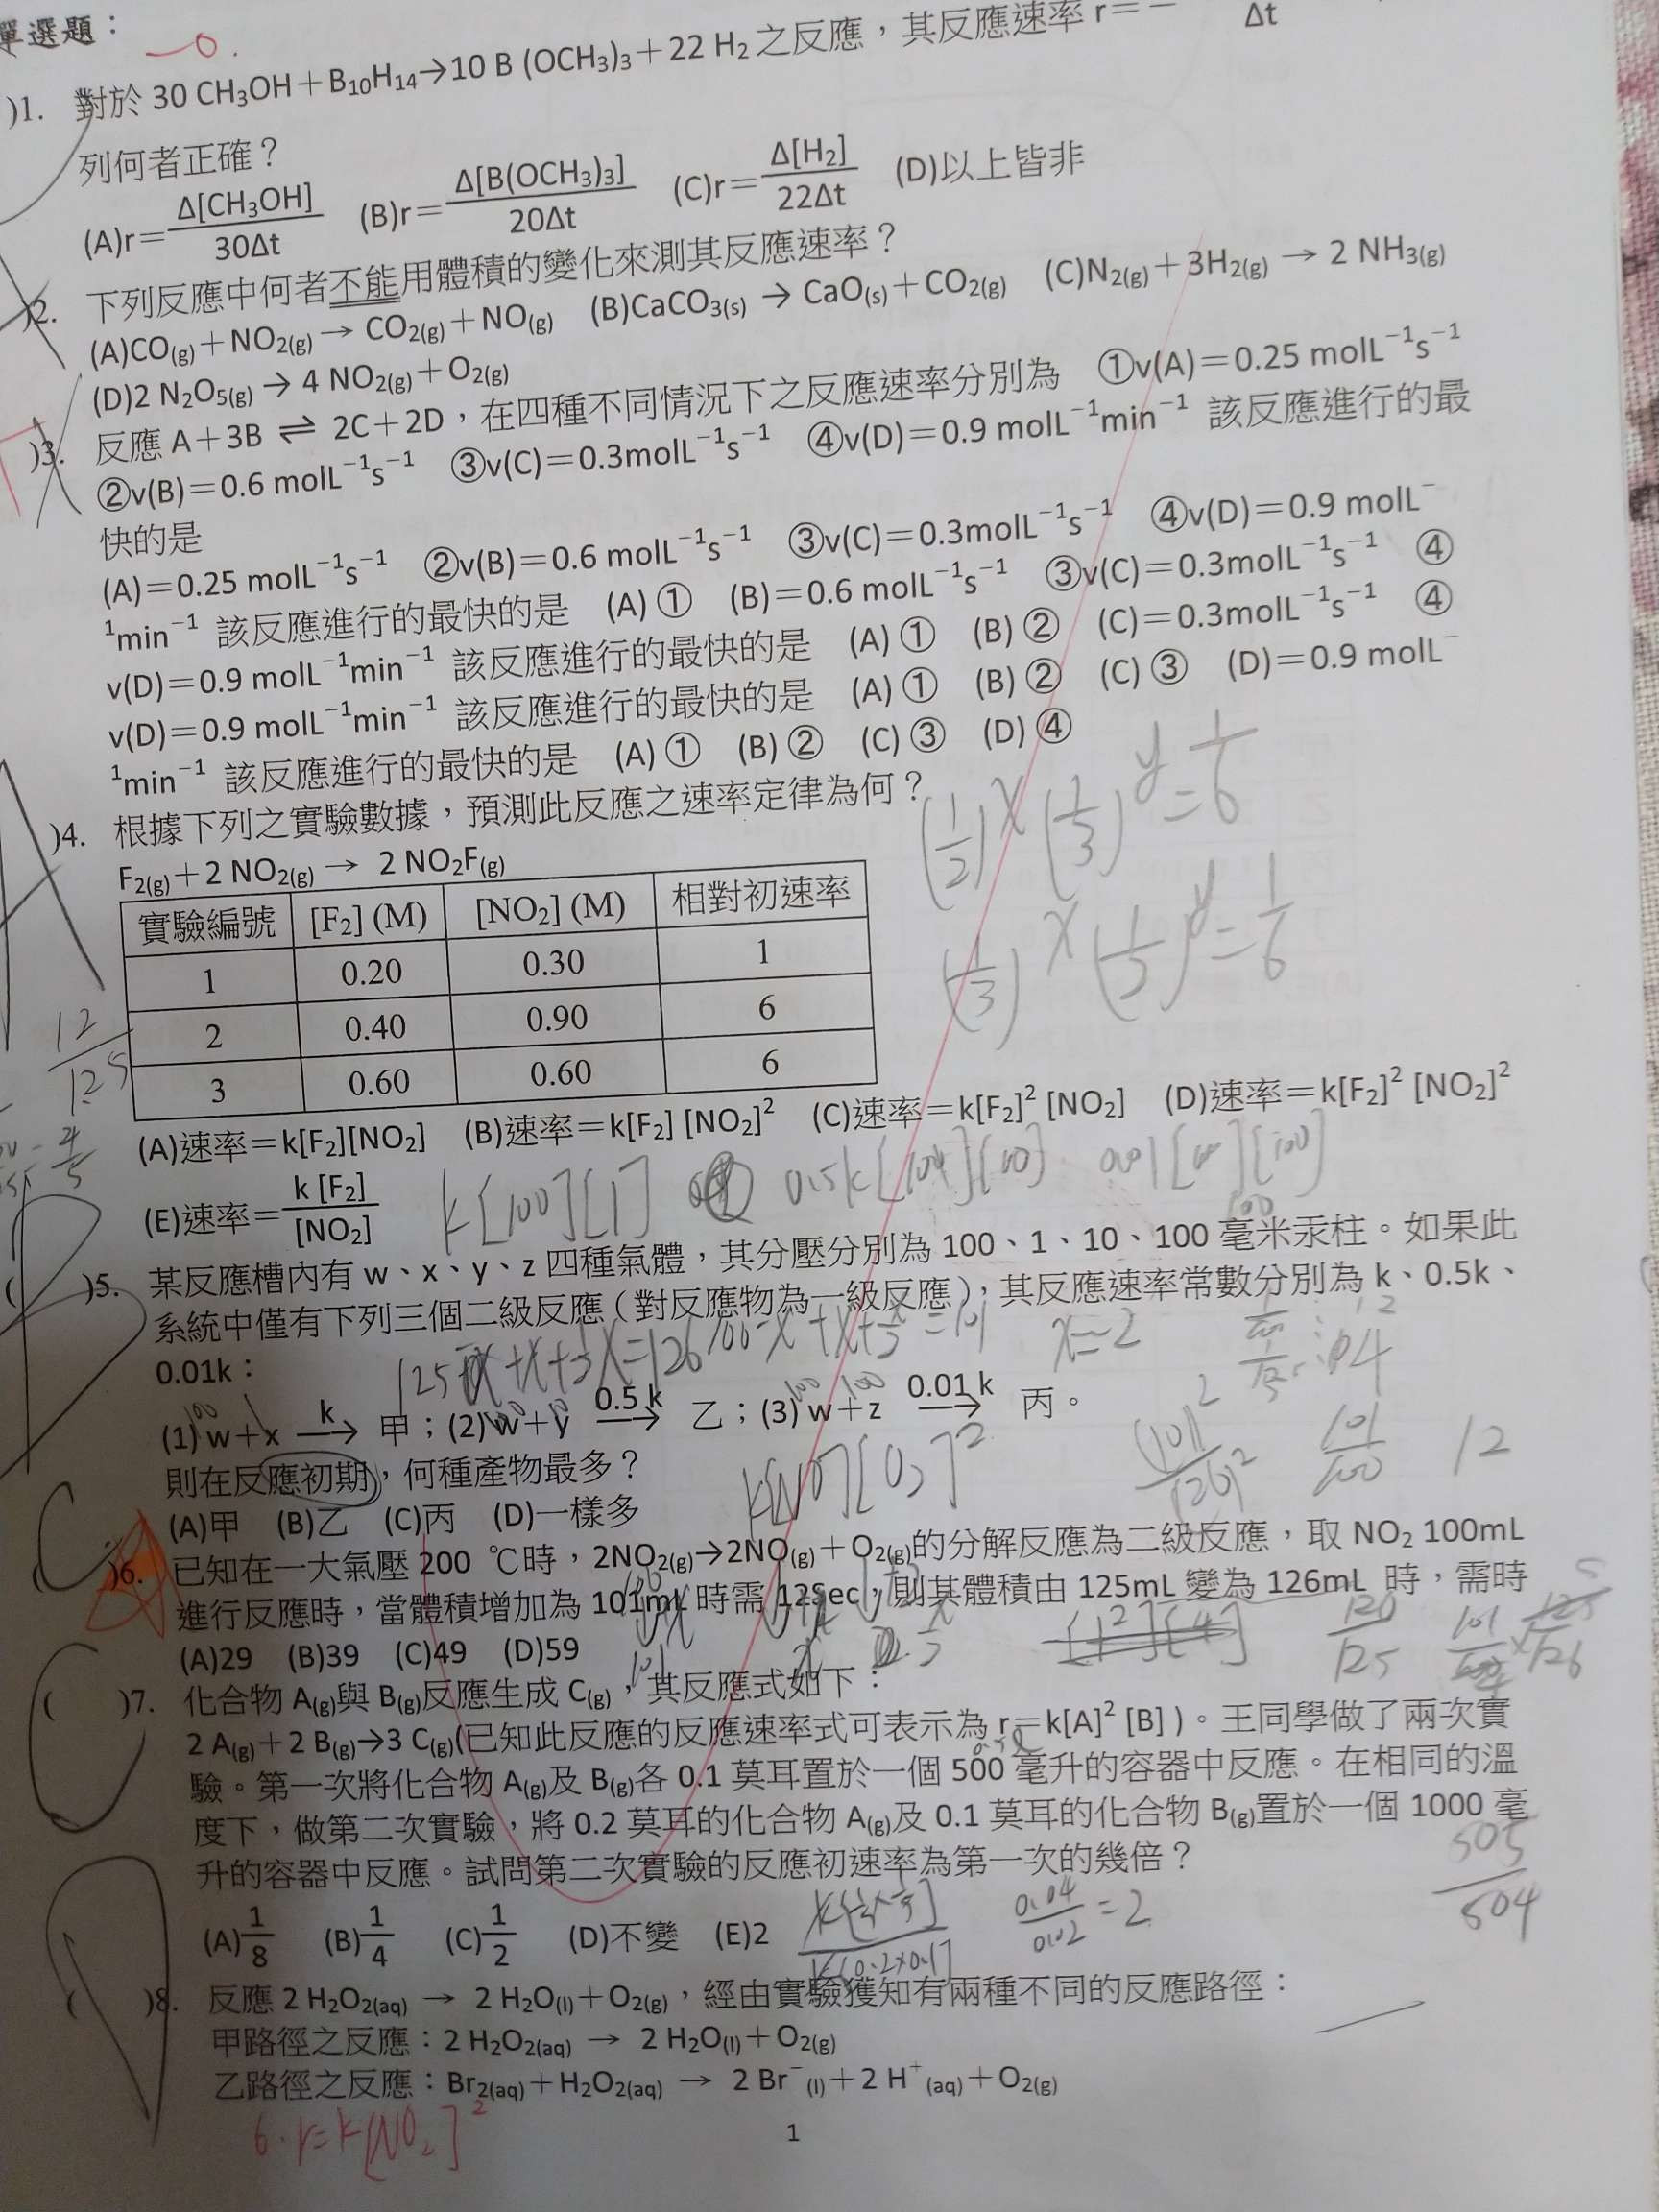 單選題：
一0.
)1. 對於 30 CH₃OH＋B₁₀H₁₄→10 B (OCH₃)₃＋22 H₂ 之反應，其反應速率 r＝－ Δt
列何者正確？
(A)r＝Δ[CH₃OH]/30Δt (B)r＝Δ[B(OCH₃)₃]/20Δt (C)r＝Δ[H₂]/22Δt (D)以上皆非
)2. 下列反應中何者不能用體積的變化來測其反應速率？
(A)CO(g)＋NO₂(g) → CO₂(g)＋NO(g) (B)CaCO₃(s) → CaO(s)＋CO₂(g) (C)N₂(g)＋3H₂(g) → 2 NH₃(g)
(D)2 N₂O₅(g) → 4 NO₂(g)＋O₂(g)
)3. 反應 A＋3B ⇌ 2C＋2D，在四種不同情況下之反應速率分別為 ①v(A)＝0.25 molL⁻¹s⁻¹
②v(B)＝0.6 molL⁻¹s⁻¹ ③v(C)＝0.3molL⁻¹s⁻¹ ④v(D)＝0.9 molL⁻¹min⁻¹ 該反應進行的最
快的是
(A)＝0.25 molL⁻¹s⁻¹ ②v(B)＝0.6 molL⁻¹s⁻¹ ③v(C)＝0.3molL⁻¹s⁻¹ ④v(D)＝0.9 molL⁻
¹min⁻¹ 該反應進行的最快的是 (A) ① (B)＝0.6 molL⁻¹s⁻¹ ③v(C)＝0.3molL⁻¹s⁻¹ ④
v(D)＝0.9 molL⁻¹min⁻¹ 該反應進行的最快的是 (A) ① (B) ② (C)＝0.3molL⁻¹s⁻¹ ④
v(D)＝0.9 molL⁻¹min⁻¹ 該反應進行的最快的是 (A) ① (B) ② (C) ③ (D)＝0.9 molL⁻
¹min⁻¹ 該反應進行的最快的是 (A) ① (B) ② (C) ③ (D) ④
)4. 根據下列之實驗數據，預測此反應之速率定律為何？
(1/2)ˣ(1/3)ʸ=1/6
F₂(g)＋2 NO₂(g) → 2 NO₂F(g)
實驗編號 [F₂] (M) [NO₂] (M) 相對初速率
1 0.20 0.30 1
2 0.40 0.90 6
3 0.60 0.60 6
12/125
(A)速率＝k[F₂][NO₂] (B)速率＝k[F₂] [NO₂]² (C)速率＝k[F₂]² [NO₂] (D)速率＝k[F₂]² [NO₂]²
(E)速率＝k [F₂]/[NO₂]
k[100][1]
( )5. 某反應槽內有 w、x、y、z 四種氣體，其分壓分別為 100、1、10、100 毫米汞柱。如果此
系統中僅有下列三個二級反應（對反應物為一級反應），其反應速率常數分別為 k、0.5k、
0.01k：
x=2
(1) w＋x k→ 甲；(2) w＋y 0.5 k→ 乙；(3) w＋z 0.01 k→ 丙。
則在反應初期，何種產物最多？
(A)甲 (B)乙 (C)丙 (D)一樣多
k[NO][O₂]²
(101)²/(126)² 101/100 12
)6. 已知在一大氣壓 200 ℃時，2NO₂(g)→2NO(g)＋O₂(g)的分解反應為二級反應，取 NO₂ 100mL
進行反應時，當體積增加為 101mL 時需 12sec，則其體積由 125mL 變為 126mL 時，需時
(A)29 (B)39 (C)49 (D)59
120/125
( )7. 化合物 A(g)與 B(g)反應生成 C(g)，其反應式如下：
2 A(g)＋2 B(g)→3 C(g)(已知此反應的反應速率式可表示為 r＝k[A]² [B] )。王同學做了兩次實
驗。第一次將化合物 A(g)及 B(g)各 0.1 莫耳置於一個 500 毫升的容器中反應。在相同的溫
度下，做第二次實驗，將 0.2 莫耳的化合物 A(g)及 0.1 莫耳的化合物 B(g)置於一個 1000 毫
升的容器中反應。試問第二次實驗的反應初速率為第一次的幾倍？
505/504
(A)1/8 (B)1/4 (C)1/2 (D)不變 (E)2
0.04/0.02=2
( )8. 反應 2 H₂O₂(aq) → 2 H₂O(l)＋O₂(g)，經由實驗獲知有兩種不同的反應路徑：
甲路徑之反應：2 H₂O₂(aq) → 2 H₂O(l)＋O₂(g)
乙路徑之反應：Br₂(aq)＋H₂O₂(aq) → 2 Br⁻(l)＋2 H⁺(aq)＋O₂(g)
6. r=k[NO₂]²
1